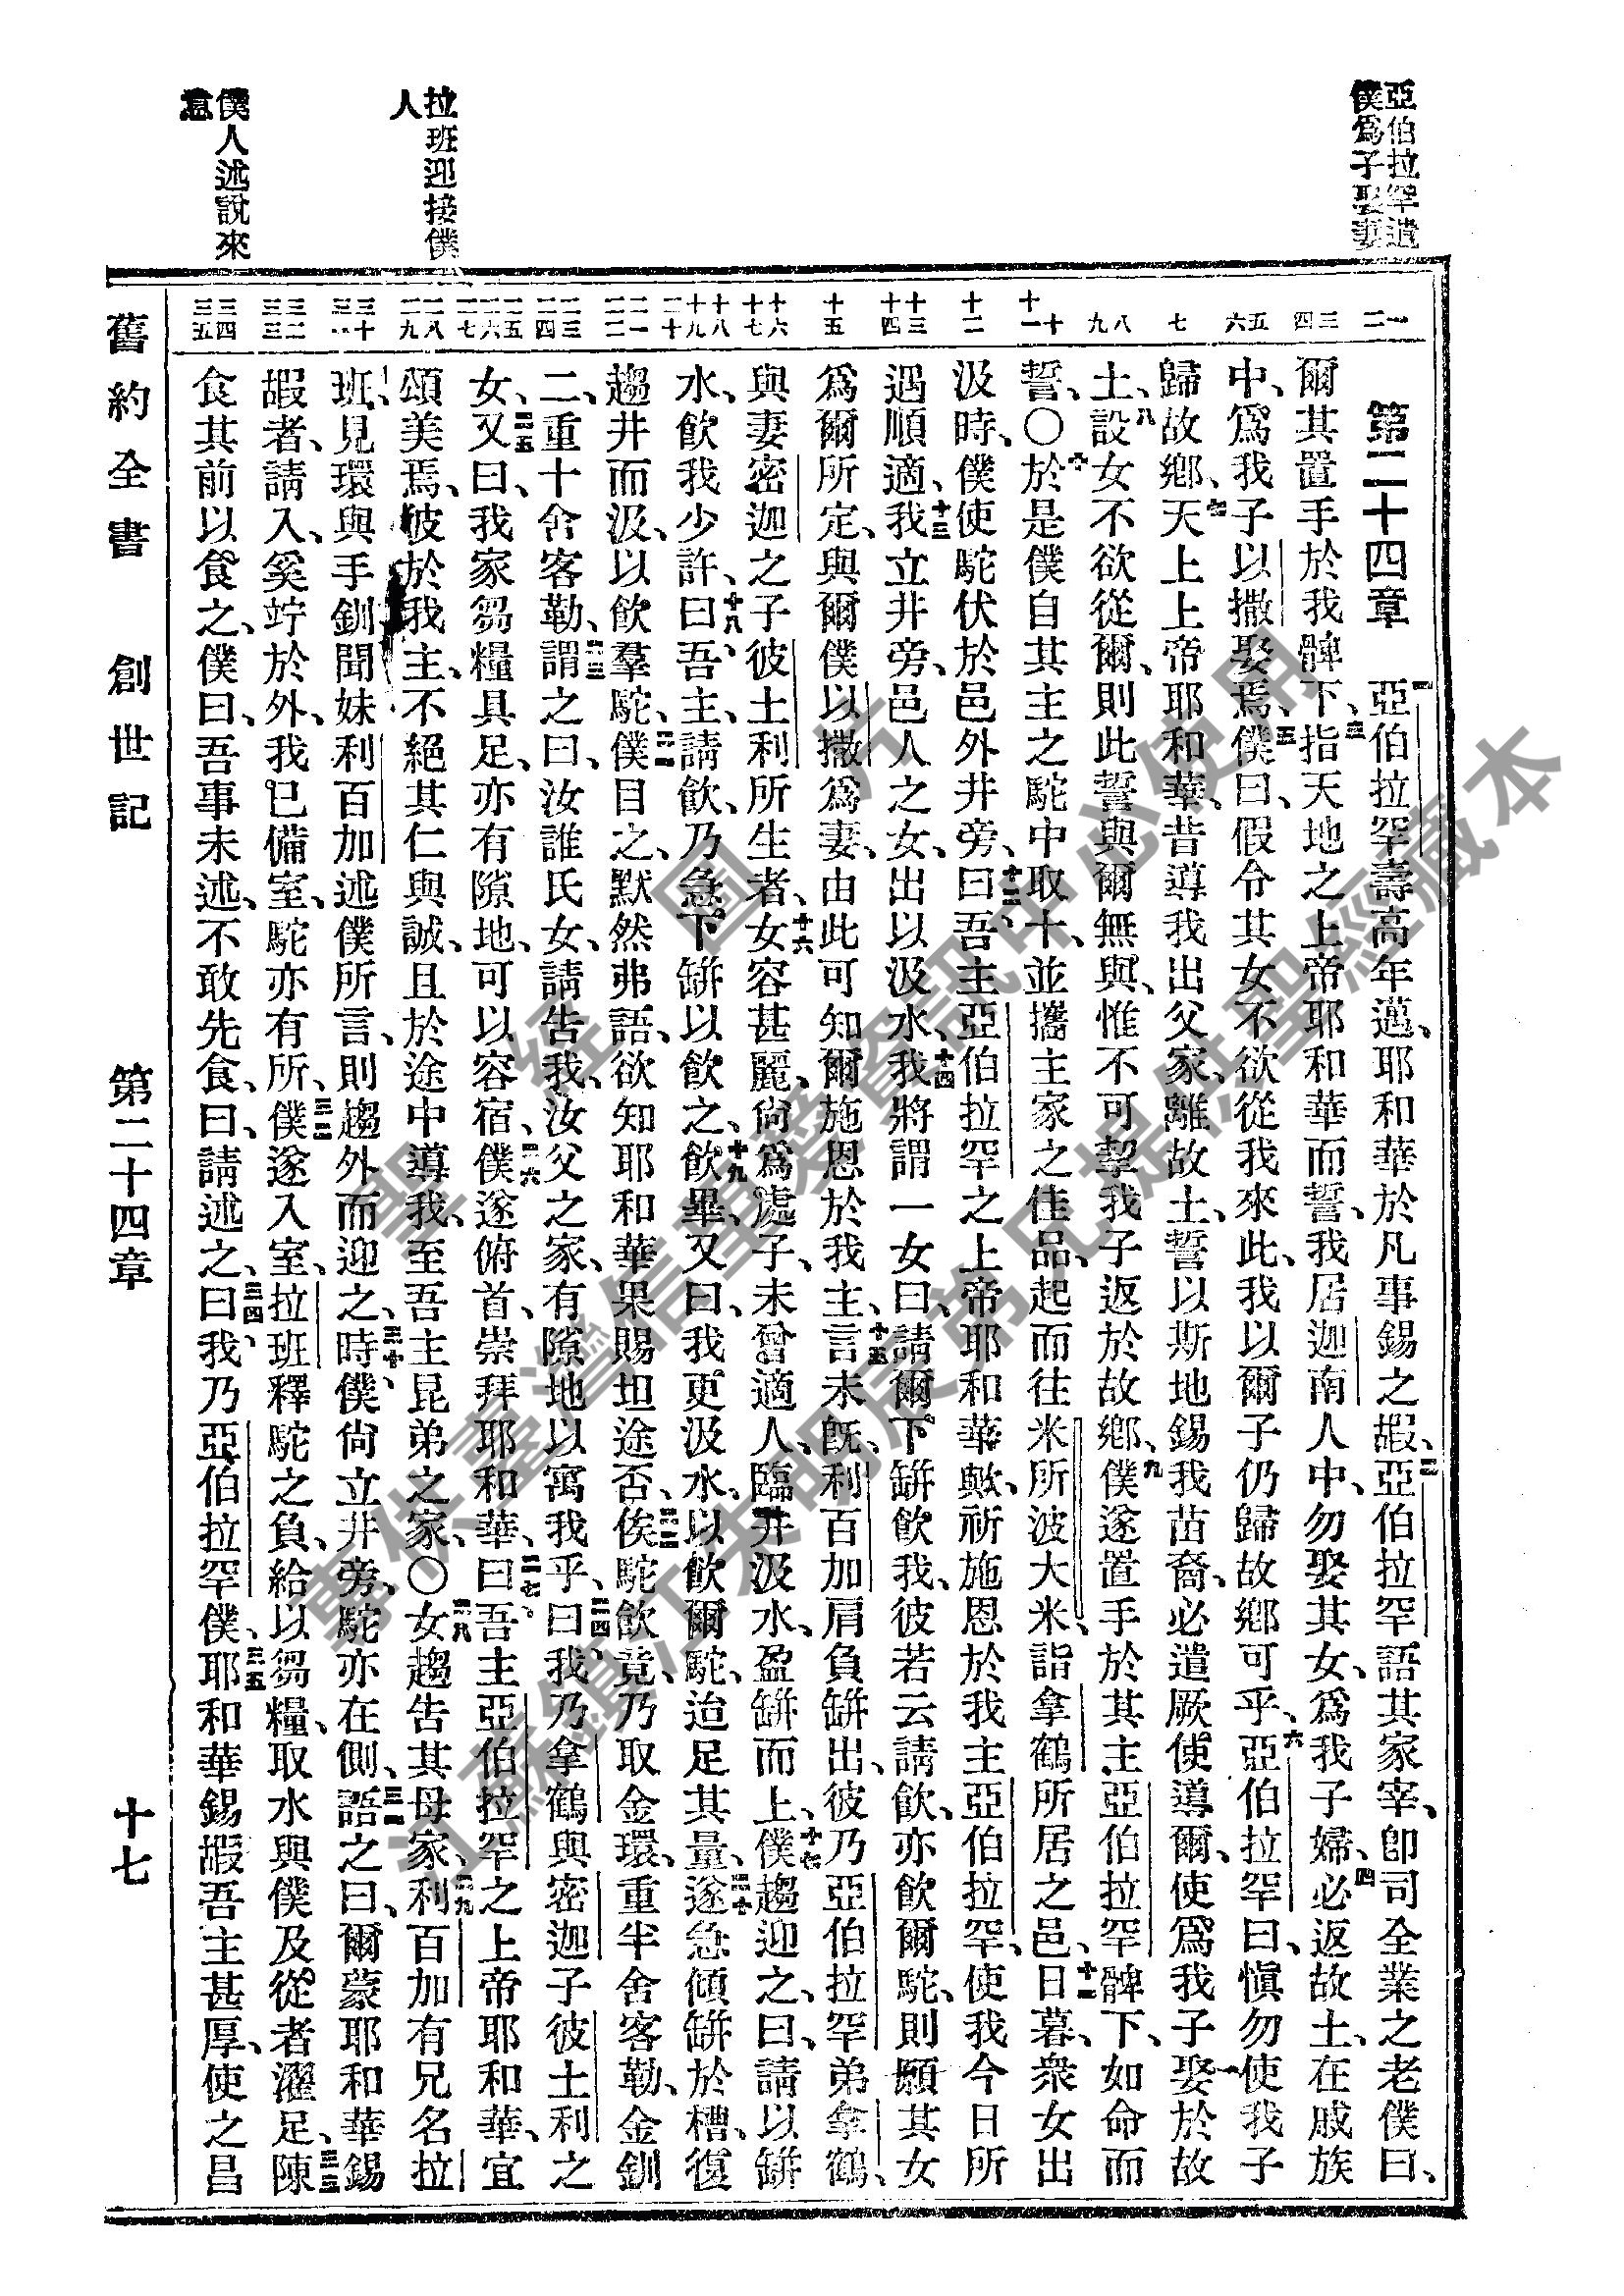 亞伯拉罕遣
僕爲子娶妻
拉班迎接僕
人
僕人述說來
意
一二
三四
五六
七
八九
十十一
十二
十三十四
十五
十六十七
十八十九二十
二一二二
二三二四
二五二六二七
二八二九
三十三一
三二三三
三四三五
第二十四章 一亞伯拉罕壽高年邁、耶和華於凡事錫之嘏、二亞伯拉罕語其家宰、卽司全業之老僕曰、
爾其置手於我髀下、三指天地之上帝耶和華而誓、我居迦南人中、勿娶其女、爲我子婦、四必返故土、在戚族
中、爲我子以撒娶焉、五僕曰、假令其女不欲從我來此、我以爾子仍歸故鄉可乎、六亞伯拉罕曰、愼勿使我子
歸故鄉、七天上上帝耶和華、昔導我出父家、離故土、誓以斯地錫我苗裔、必遣厥使導爾、使爲我子娶於故
土、八設女不欲從爾、則此誓與爾無與、惟不可挈我子返於故鄉、九僕遂置手於其主亞伯拉罕髀下、如命而
誓、〇十於是僕自其主之駝中取十、並攜主家之佳品、起而往米所波大米、詣拿鶴所居之邑、十一日暮、衆女出
汲時、僕使駝伏於邑外井旁、十二曰、吾主亞伯拉罕之上帝耶和華歟、祈施恩於我主亞伯拉罕、使我今日所
遇順適、十三我立井旁、邑人之女、出以汲水、十四我將謂一女曰、請爾下缾飮我、彼若云請飮、亦飮爾駝、則願其女
爲爾所定、與爾僕以撒爲妻、由此可知爾施恩於我主、十五言未旣、利百加肩負缾出、彼乃亞伯拉罕弟拿鶴、
與妻密迦之子彼土利所生者、十六女容甚麗、尙爲處子、未曾適人、臨井汲水、盈缾而上、十七僕趨迎之、曰、請以缾
水、飮我少許、十八曰、吾主、請飮、乃急下缾以飮之、十九飮畢、又曰、我更汲水、以飮爾駝、迨足其量、二十遂急傾缾於槽、復
趨井而汲、以飮羣駝、二一僕目之、默然弗語、欲知耶和華果賜坦途否、二二俟駝飮竟、乃取金環、重半舍客勒、金釧
二、重十舍客勒、二三謂之曰、汝誰氏女、請告我、汝父之家、有隙地以寓我乎、二四曰、我乃拿鶴與密迦子彼土利之
女、二五又曰、我家芻糧具足、亦有隙地、可以容宿、二六僕遂俯首、崇拜耶和華、二七曰、吾主亞伯拉罕之上帝耶和華、宜
頌美焉、彼於我主、不絕其仁與誠、且於途中導我、至吾主昆弟之家、〇二八女趨告其母家、二九利百加有兄名拉
班、見環與手釧、聞妹利百加述僕所言、則趨外而迎之、三十時、僕尙立井旁、駝亦在側、三一語之曰、爾蒙耶和華錫
嘏者、請入、奚竚於外、我已備室、駝亦有所、三二僕遂入室、拉班釋駝之負、給以芻糧、取水與僕及從者濯足、三三陳
食其前以食之、僕曰、吾事未述、不敢先食、曰、請述之、三四曰、我乃亞伯拉罕僕、三五耶和華錫嘏吾主甚厚、使之昌
舊約全書 創世記 第二十四章 十七
聖經圖片
專供臺灣信望愛資訊中心使用
江蘇鎮江朱明辰弟兄提供聖經藏本